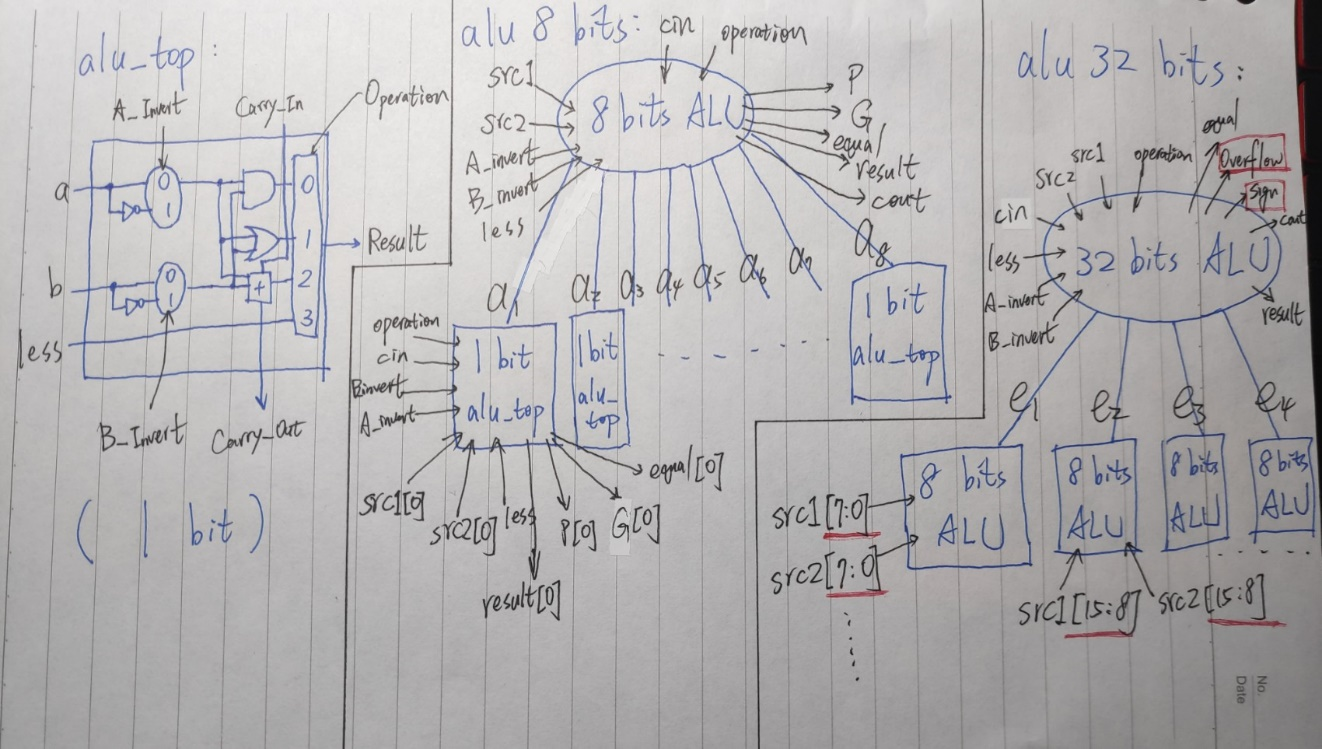 alu_top:
A_Invert
Carry_In
Operation
a
0
1
0
1
Result
b
0
1
2
3
less
B_Invert
Carry_Out
( 1 bit )
alu 8 bits:
cin
operation
src1
src2
A_invert
B_invert
less
8 bits ALU
P
G
equal
result
cout
a1
a2
a3
a4
a5
a6
a7
a8
operation
cin
Binvert
A_invert
1 bit
alu_top
1 bit
alu_
top
1 bit
alu_top
src1[0]
src2[0]
less
result[0]
P[0]
G[0]
equal[0]
alu 32 bits:
equal
Overflow
sign
cout
src1
operation
src2
cin
less
A_invert
B_invert
32 bits ALU
result
e1
e2
e3
e4
8 bits
ALU
8 bits
ALU
8 bits
ALU
8 bits
ALU
src1[7:0]
src2[7:0]
src1[15:8]
src2[15:8]
No.
Date